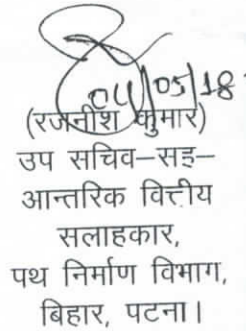 04/05/18
(रजनीश कुमार)
उप सचिव-सह-
आन्तरिक वित्तीय
सलाहकार,
पथ निर्माण विभाग,
बिहार, पटना।